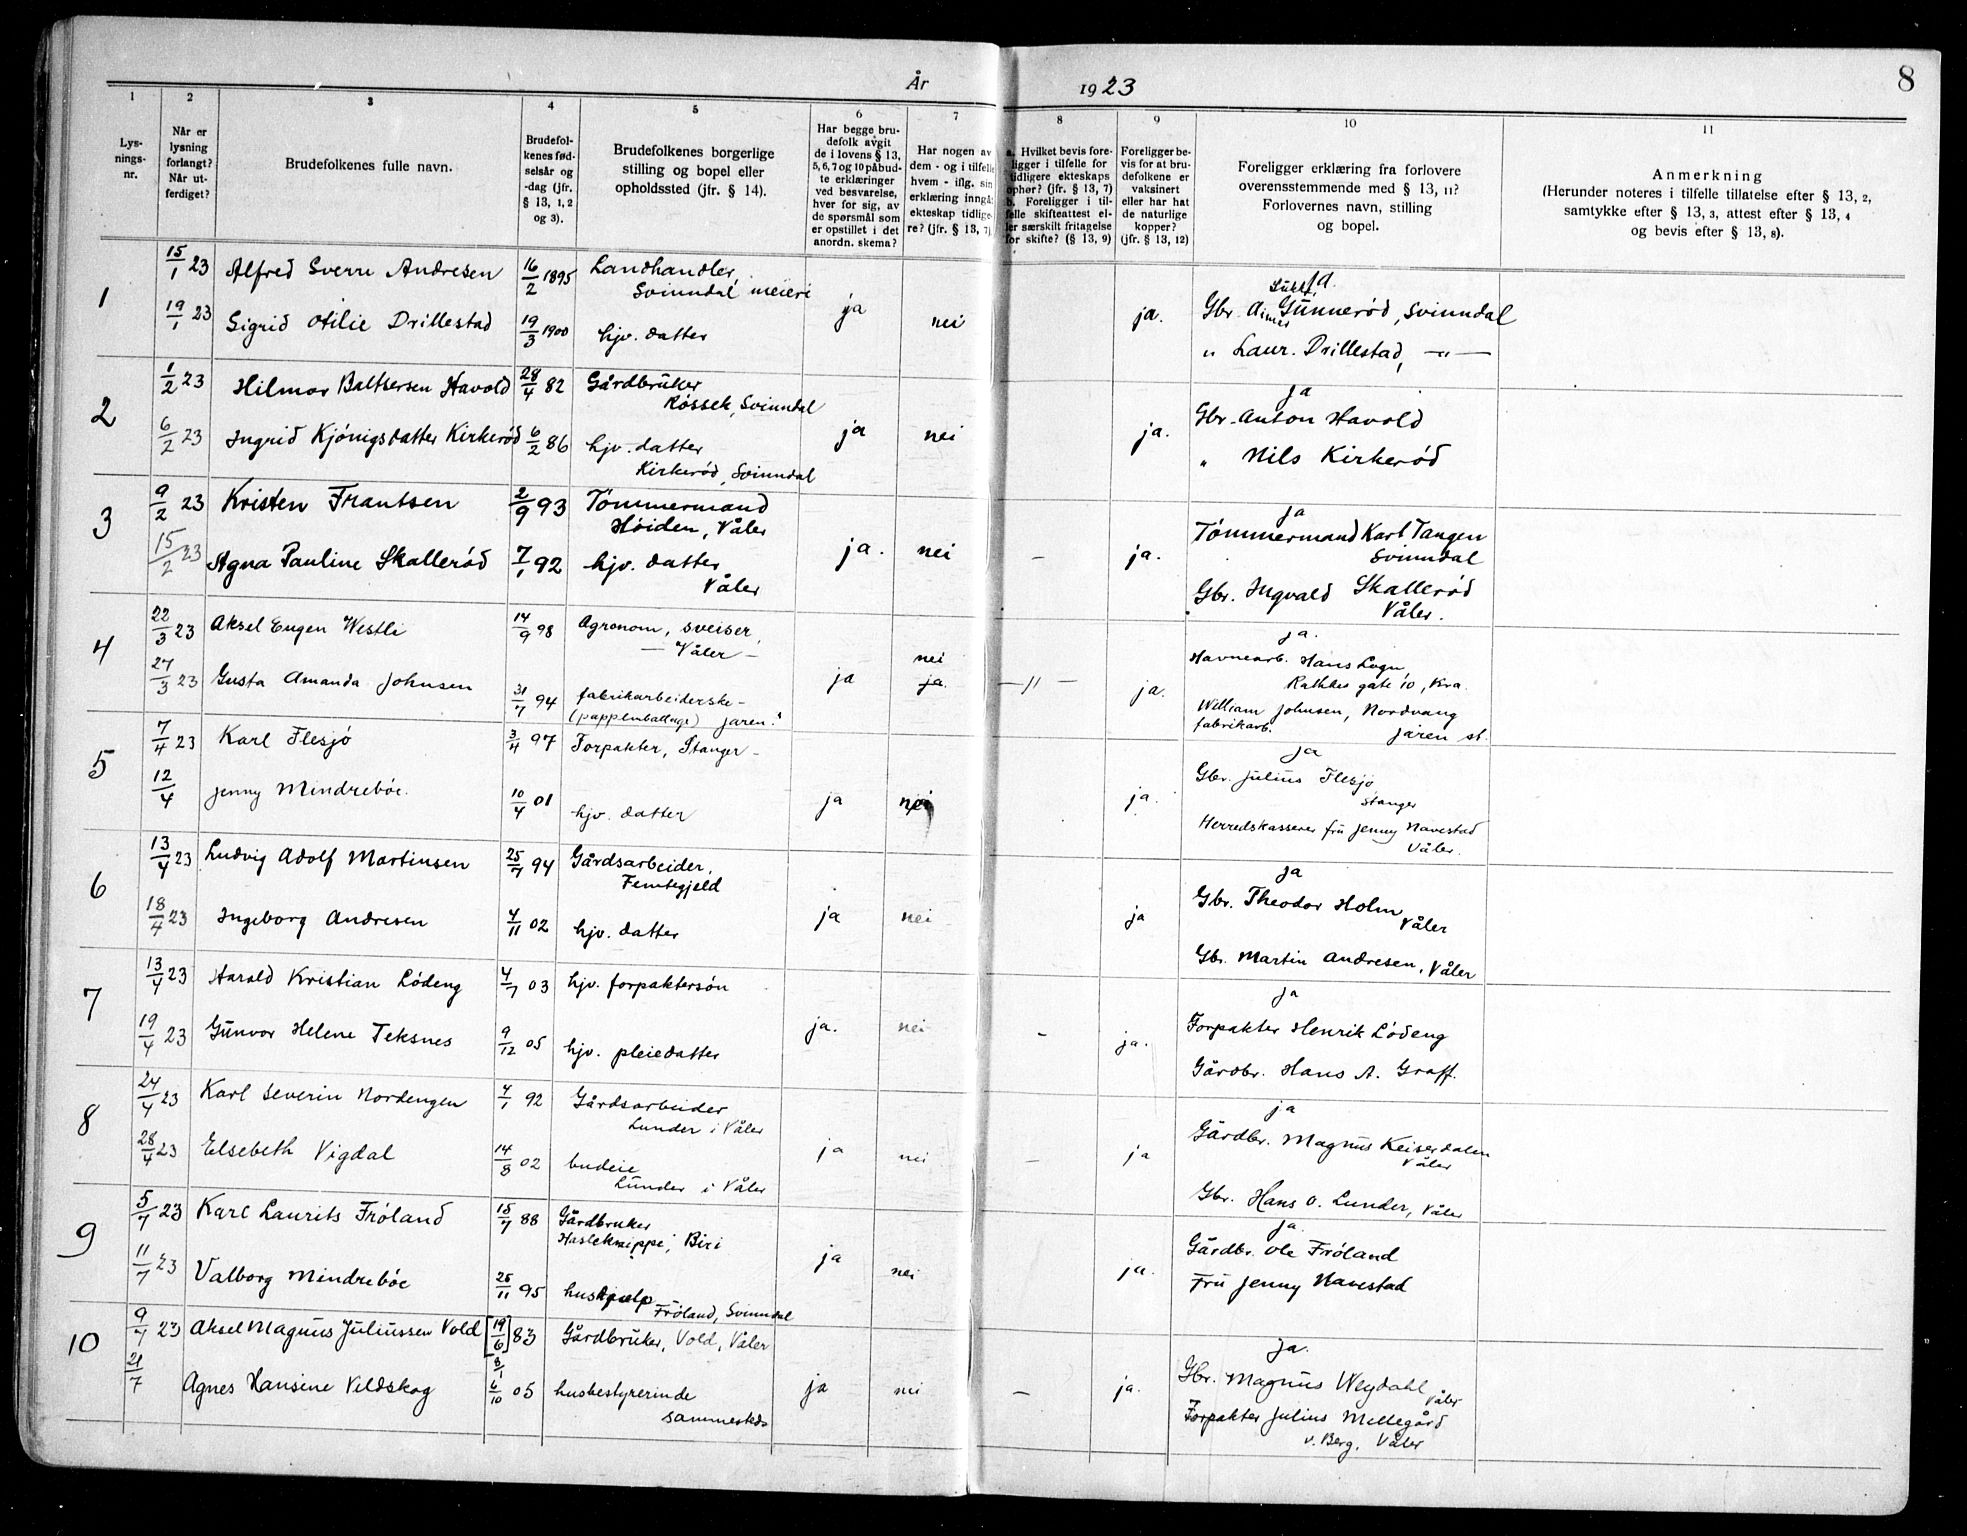 År 1923
8
1 2 3 4 5 6 7 8 9 10 11
Lys-
nings-
nr.
Når er
lysning
forlangt?
Når ut-
ferdiget?
Brudefolkenes fulle navn.
Brudefol-
kenes fød-
selsår og
-dag (jfr.
§ 13, 1, 2
og 3).
Brudefolkenes borgerlige
stilling og bopel eller
opholdssted (jfr. § 14).
Har begge bru-
defolk avgit
de i lovens § 13,
5, 6, 7 og 10 påbud-
te erklæringer
ved besvarelse,
hver for sig, av
de spørsmål som
er opstillet i det
anordn. skema?
Har nogen av
dem - og i tilfelle
hvem - iflg. sin
erklæring inngåt
ekteskap tidlige-
re? (jfr. § 13, 7)
a. Hvilket bevis fore-
ligger i tilfelle for
tidligere ekteskaps
ophør? (jfr. § 13, 7)
b. Foreligger i til-
felle skifteattest el-
ler særskilt fritagelse
for skifte? (§ 13, 9)
Foreligger be-
vis for at bru-
defolkene er
vaksinert
eller har hat
de naturlige
kopper?
(jfr. § 13, 12)
Foreligger erklæring fra forlovere
overensstemmende med § 13, 11?
Forlovernes navn, stilling
og bopel.
Anmerkning
(Herunder noteres i tilfelle tillatelse efter § 13, 2,
samtykke efter § 13, 3, attest efter § 13, 4
og bevis efter § 13, 8).
1
15/1 23 Alfred Sverre Andresen 16/2 1895 Landhandler,
Svinndal meieri
19/1 23 Sigrid Otilie Drillestad 19/3 1900 hjv. datter
ja nei ja.
Gbr. Gunnerød, Svinndal
" Laur. Drillestad, —"—
2
1/2 23 Hilmar Baltsersen Havold 28/4 82 Gårdbruker
Røssek, Svinndal
6/2 23 Ingrid Kjønigsdatter Kirkerød 6/2 86 hjv. datter
Kirkerød, Svinndal
ja nei ja.
ja
Gbr. Anton Havold
" Nils Kirkerød
3
9/2 23 Kristen Frantsen 2/9 93 Tømmermand
Høiden, Våler
15/2 23 Agna Pauline Skallerød 7/1 92 hjv. datter
Våler
ja. nei – ja.
ja
Tømmermand Karl Tangen
Svinndal
Gbr. Ingvald Skallerød
Våler.
4
22/3 23 Aksel Eugen Westli 14/9 98 Agronom, sveiser,
— Våler —
27/3 23 Gusta Amanda Johnsen 31/7 94 fabrikarbeiderske –
(pappemballage) Jaren.
ja nei
ja. —"— ja.
ja.
Havnearb. Hans Logn
Rathkes gate 10, Kra.
William Johnsen, Nordvang
fabrikarb. Jaren st.
5
7/4 23 Karl Flesjø 3/4 97 Forpakter, Stanger –
12/4 Jenny Mindrebøe. 10/4 01 hjv. datter
ja nei ja.
ja
Gbr. Julius Flesjø
Stanger
Herredskasserer fru Jenny Navestad
Våler.
6
13/4 23 Ludvig Adolf Martinsen 25/7 94 Gårdsarbeider,
Femtegjeld
18/4 23 Ingeborg Andresen 4/11 02 hjv. datter
ja nei ja
ja
Gbr. Theodor Holm
Våler
Gbr. Martin Andresen, Våler
7
13/4 23 Harald Kristian Lødeng 4/7 03 hjv. forpaktersøn
19/4 23 Gunvor Helene Teksnes 9/12 05 hjv. pleiedatter
ja. nei – ja.
ja
Forpakter Henrik Lødeng
Gårdbr. Hans A. Graff.
8
24/4 23 Karl Severin Nordengen 4/1 92 Gårdsarbeider
Lunder i Våler
28/4 23 Elsebeth Vigdal 14/8 02 budeie
Lunder i Våler
ja nei – ja
ja
Gårdbr. Magnus Keiserdalen
Våler
Gbr. Hans O. Lunder, Våler
9
5/7 23 Karl Laurits Frøland 15/7 88 Gårdbruker
Hasleknippe, Biri
11/7 23 Valborg Mindrebøe 26/11 95 hushjælp
Frøland, Svinndal
ja nei ja.
ja.
Gårdbr. Ole Frøland
Fru Jenny Navestad
10
9/7 23 Aksel Magnus Juliussen Vold [19/6] 83 Gårdbruker, Vold, Våler
8/1
21/7 Agnes Hansine Veldskog 6/10 05 husbestyrerinde
sammesteds
ja nei – ja.
ja.
Gbr. Magnus Weydahl
Våler
Forpakter Julius Mellegård
v. Berg, Våler